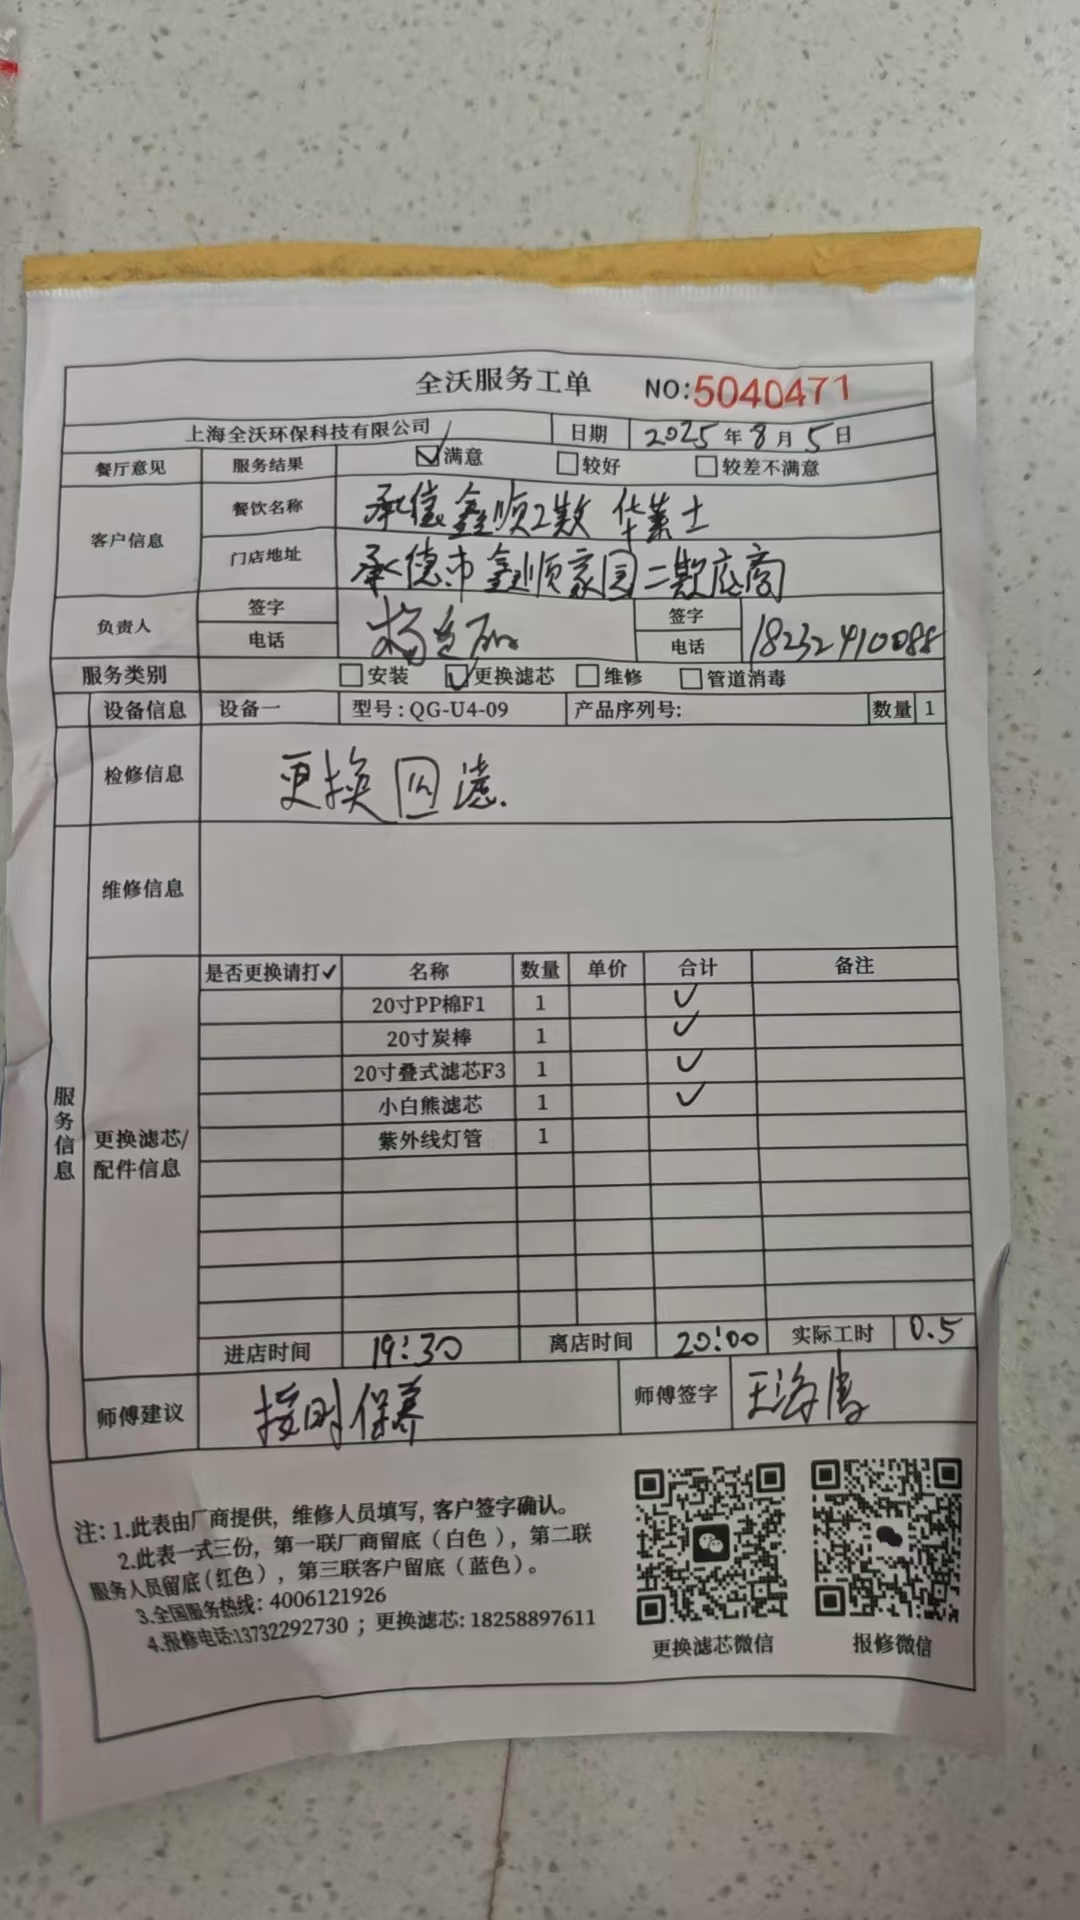 全沃服务工单 NO:5040471
上海全沃环保科技有限公司 日期 2025年8月5日
餐厅意见 服务结果 满意 较好 较差不满意
客户信息 餐饮名称 承德鑫顺 华莱士
门店地址 承德市鑫顺家园二 底商
负责人 签字 签字
电话 电话 18232410088
服务类别 安装 更换滤芯 维修 管道消毒
设备信息 设备一 型号:QG-U4-09 产品序列号: 数量 1
检修信息 更换四滤.
维修信息
服务信息
更换滤芯/
配件信息
是否更换请打✓ 名称 数量 单价 合计 备注
20寸PP棉F1 1 ✓
20寸炭棒 1 ✓
20寸叠式滤芯F3 1 ✓
小白熊滤芯 1 ✓
紫外线灯管 1
进店时间 19:30 离店时间 20:00 实际工时 0.5
师傅建议 按时保养 师傅签字 王海
注:1.此表由厂商提供，维修人员填写,客户签字确认。
2.此表一式三份，第一联厂商留底（白色），第二联
服务人员留底(红色)，第三联客户留底（蓝色）。
3.全国服务热线: 4006121926
4.报修电话:13732292730；更换滤芯: 18258897611
更换滤芯微信 报修微信